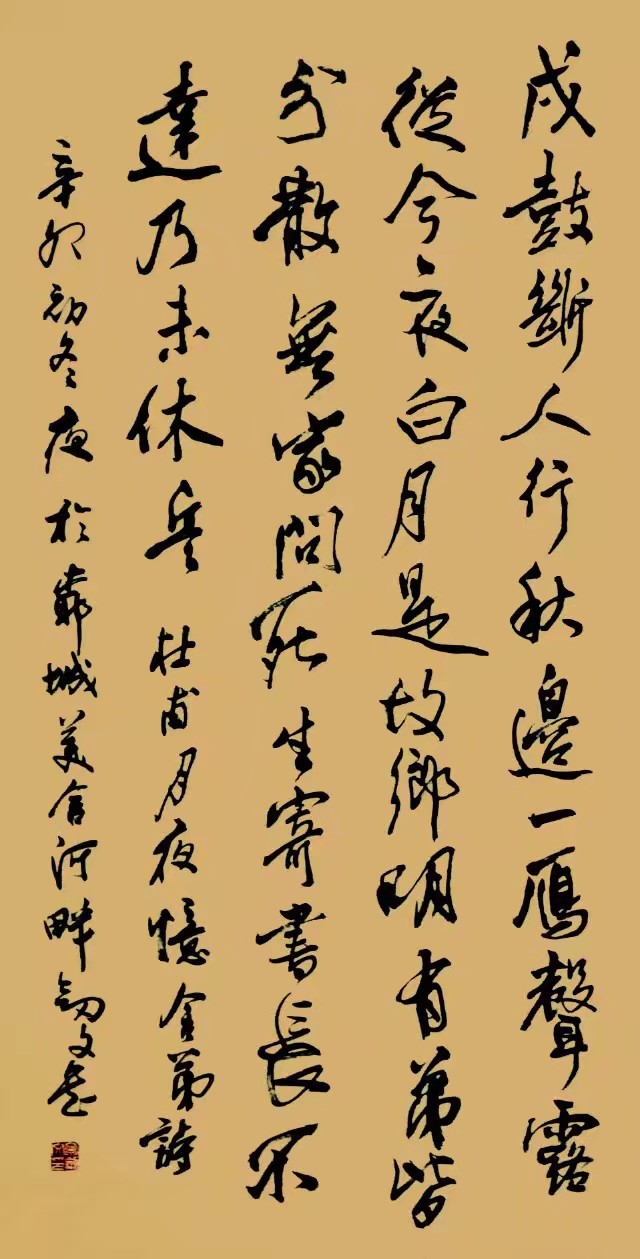 戍鼓斷人行秋邊一雁聲露
從今夜白月是故鄉明有弟皆
分散無家問死生寄書長不
達乃未休兵 杜甫月夜憶舍弟詩
辛卯初冬夜於鄰城美舍河畔